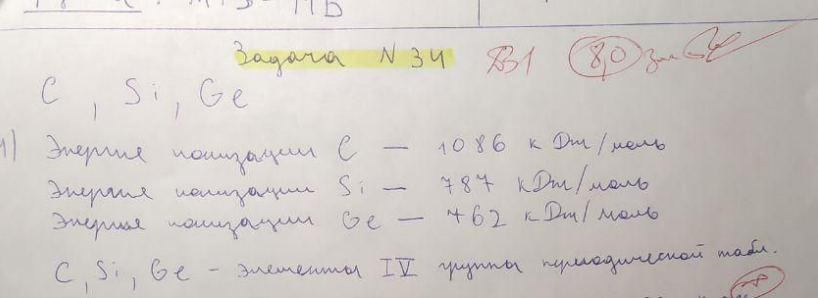 Задача N 34 8,0
C, Si, Ge
1) Энергия ионизации C — 1086 кДж/моль
Энергия ионизации Si — 787 кДж/моль
Энергия ионизации Ge — 762 кДж/моль
C, Si, Ge - элементы IV группы периодической табл.